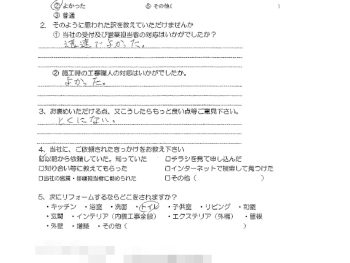 ② よかった ⑤ その他(
③ 普通
2. そのように思われた訳を教えていただけませんか
① 当社の受付及び営業担当者の対応はいかがでしたか?
迅速でよかった。
② 施工時の工事職人の対応はいかがでしたか。
よかった。
3、お褒めいただける点、又こうしたらもっと良い点等ご意見下さい。
とくにない。
4、当社に、ご依頼されたきっかけをお教え下さい
☑以前から依頼していた。知っていた □チラシを見て申し込んだ
□知り合い等に教えてもらった □インターネットで検索して見つけた
□当社の営業・現場担当者に勧められた □その他( )
5、次にリフォームするならどこをされますか?
・キッチン ・浴室 ・洗面 ・トイレ ・子供室 ・リビング ・和室
・玄関 ・インテリア(内装工事全般) ・エクステリア(外構) ・屋根
・外壁 ・増築 ・その他( )